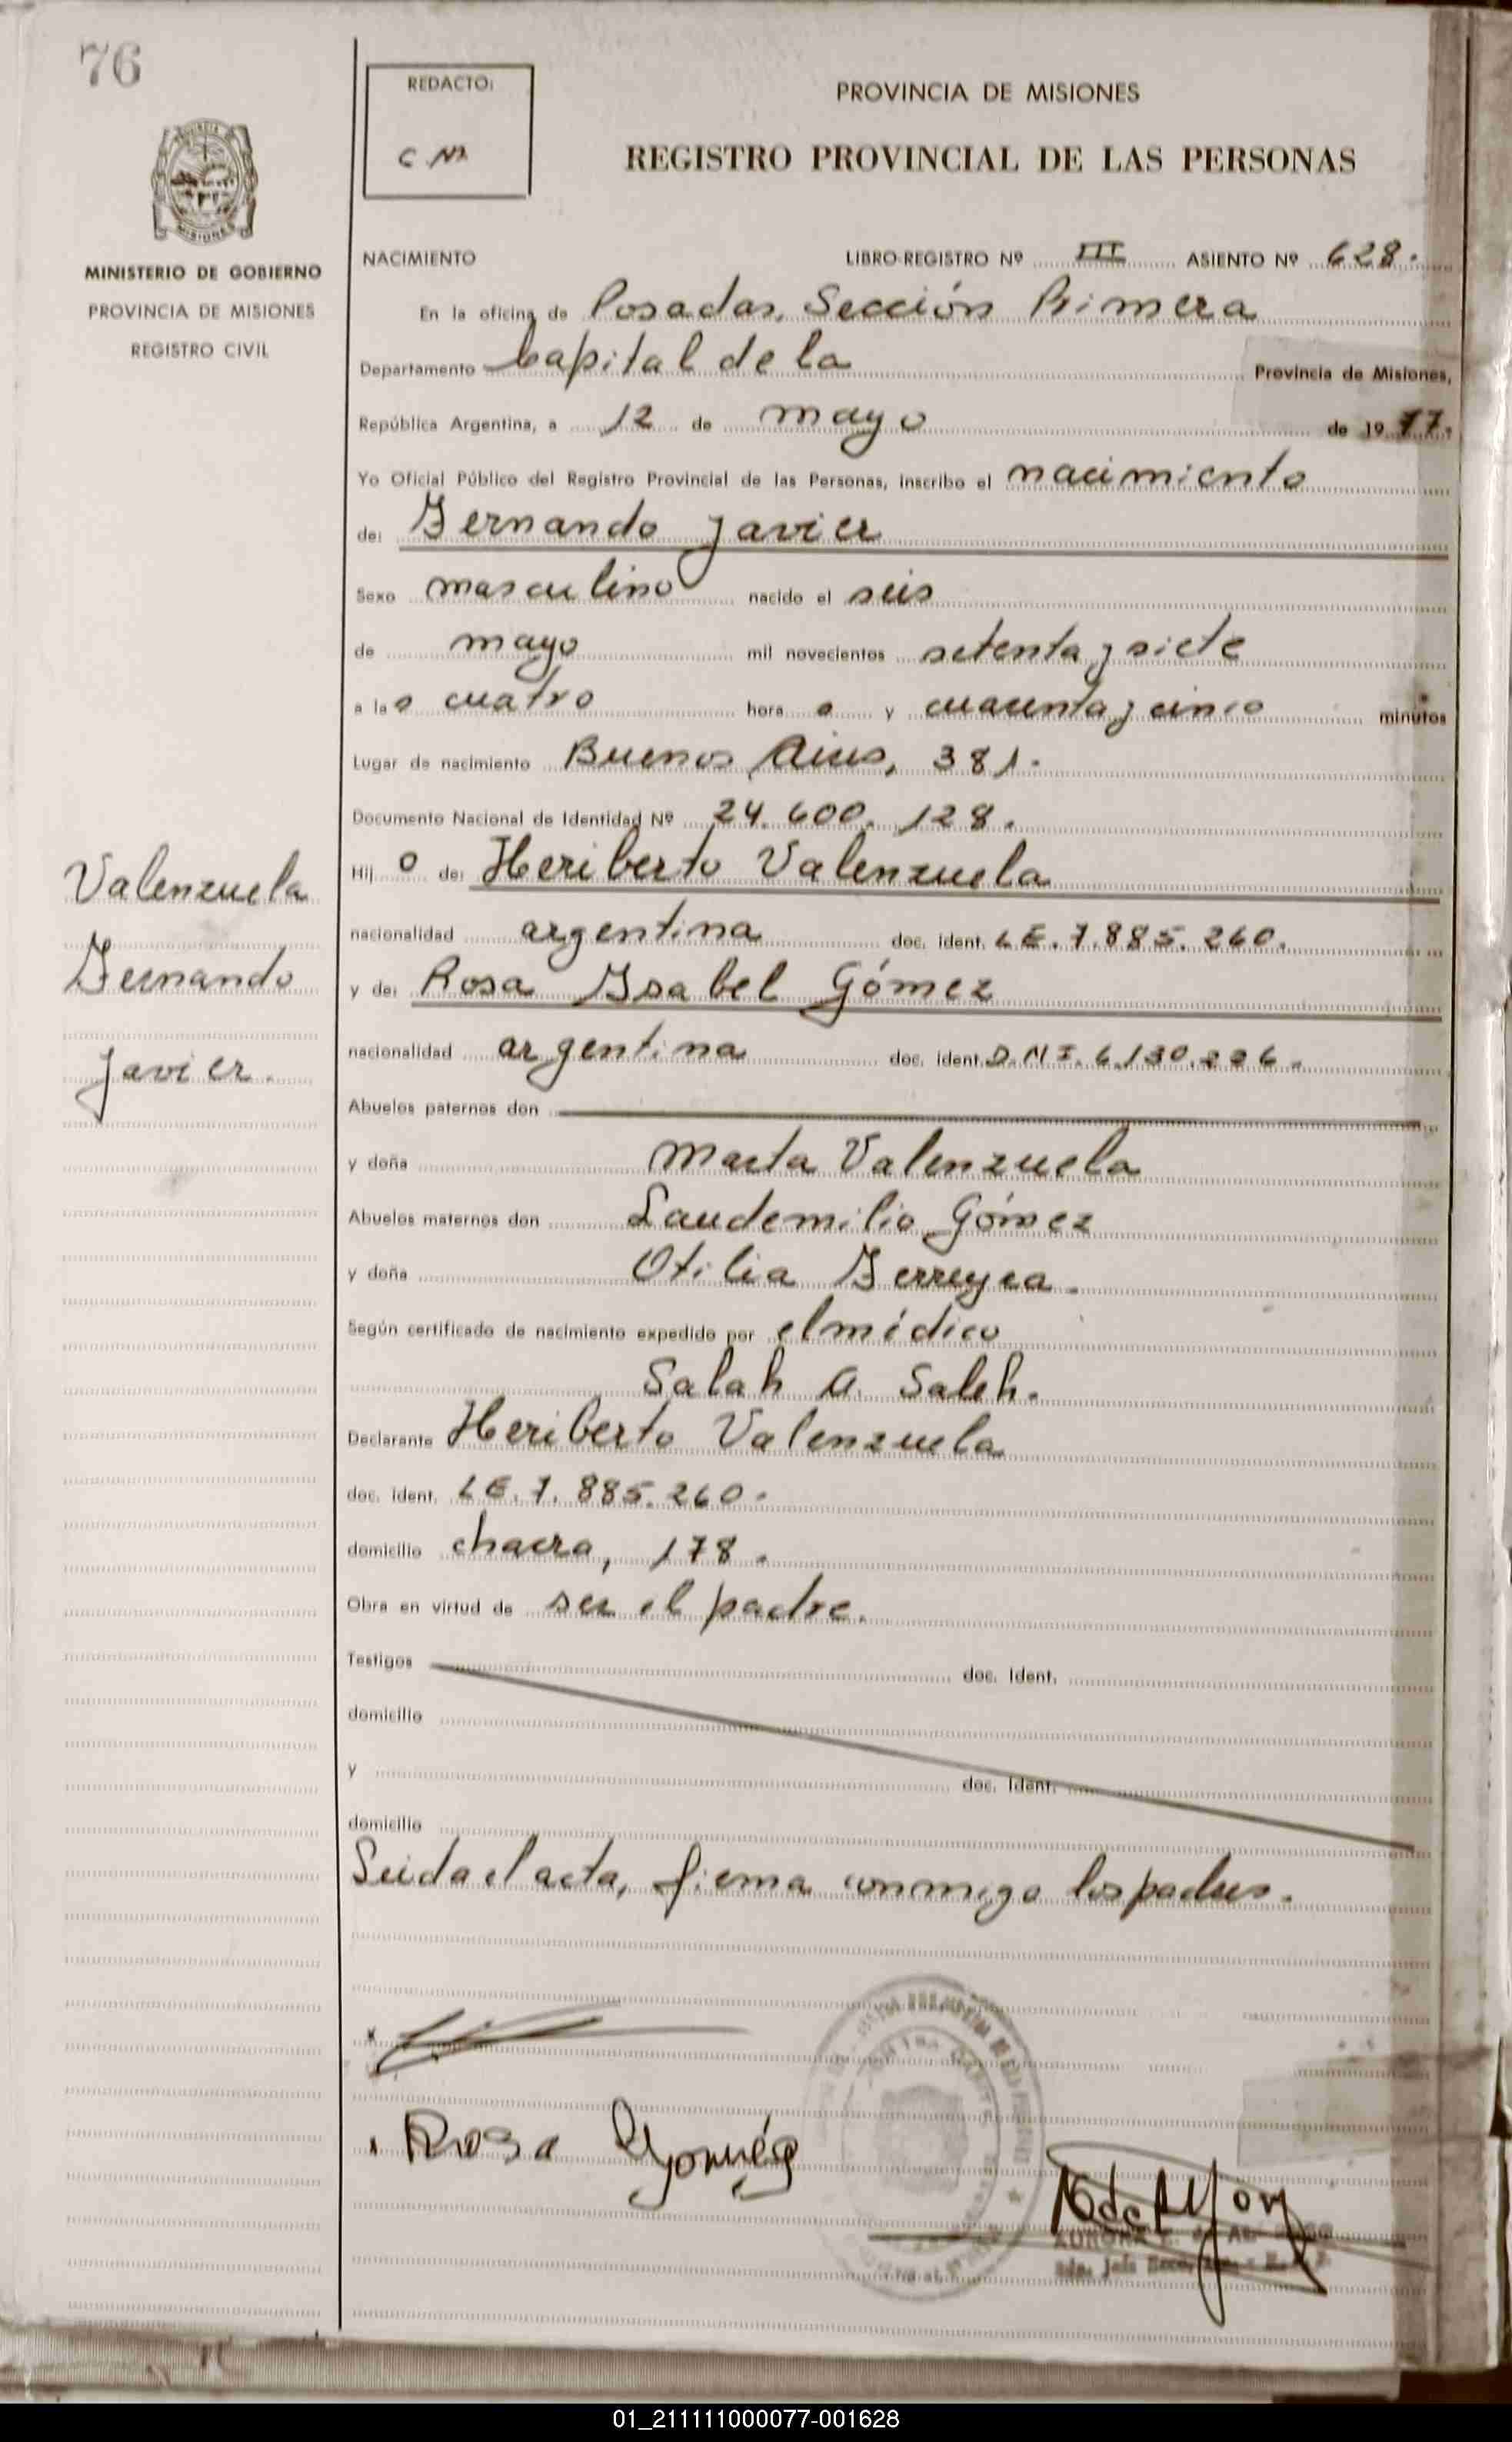 76
REDACTO:
C M
PROVINCIA DE MISIONES
REGISTRO PROVINCIAL DE LAS PERSONAS
MISIONES
MINISTERIO DE GOBIERNO
PROVINCIA DE MISIONES
REGISTRO CIVIL
NACIMIENTO LIBRO-REGISTRO Nº III ASIENTO Nº 628.
En la oficina de Posadas, Sección Primera
Departamento Capital de la Provincia de Misiones,
República Argentina, a 12 de mayo de 1977.
Yo Oficial Público del Registro Provincial de las Personas, inscribo el nacimiento
de: Fernando Javier
Sexo masculino nacido el seis
de mayo mil novecientos setenta y siete
a las cuatro hora s y cuarenta y cinco minutos
Lugar de nacimiento Buenos Aires, 381.
Documento Nacional de Identidad Nº 24.600.128.
Hij o de: Heriberto Valenzuela
Valenzuela
nacionalidad argentina doc. ident. LE. 7.885.260.
Fernando
y de: Rosa Isabel Gómez
Javier.
nacionalidad argentina doc. ident. D.N.I. 6.130.226.
Abuelos paternos don
y doña Marta Valenzuela
Abuelos maternos don Laudemilio Gómez
y doña Otilia Ferreyra.
Según certificado de nacimiento expedido por el médico
Salah A. Saleh.
Declarante Heriberto Valenzuela
doc. ident. LE. 7.885.260.
domicilio chacra, 178.
Obra en virtud de ser el padre.
Testigos doc. ident.
domicilio
y doc. ident.
domicilio
Leida el acta, firma conmigo los padres.
x
Rosa Goméz
01_211111000077-001628